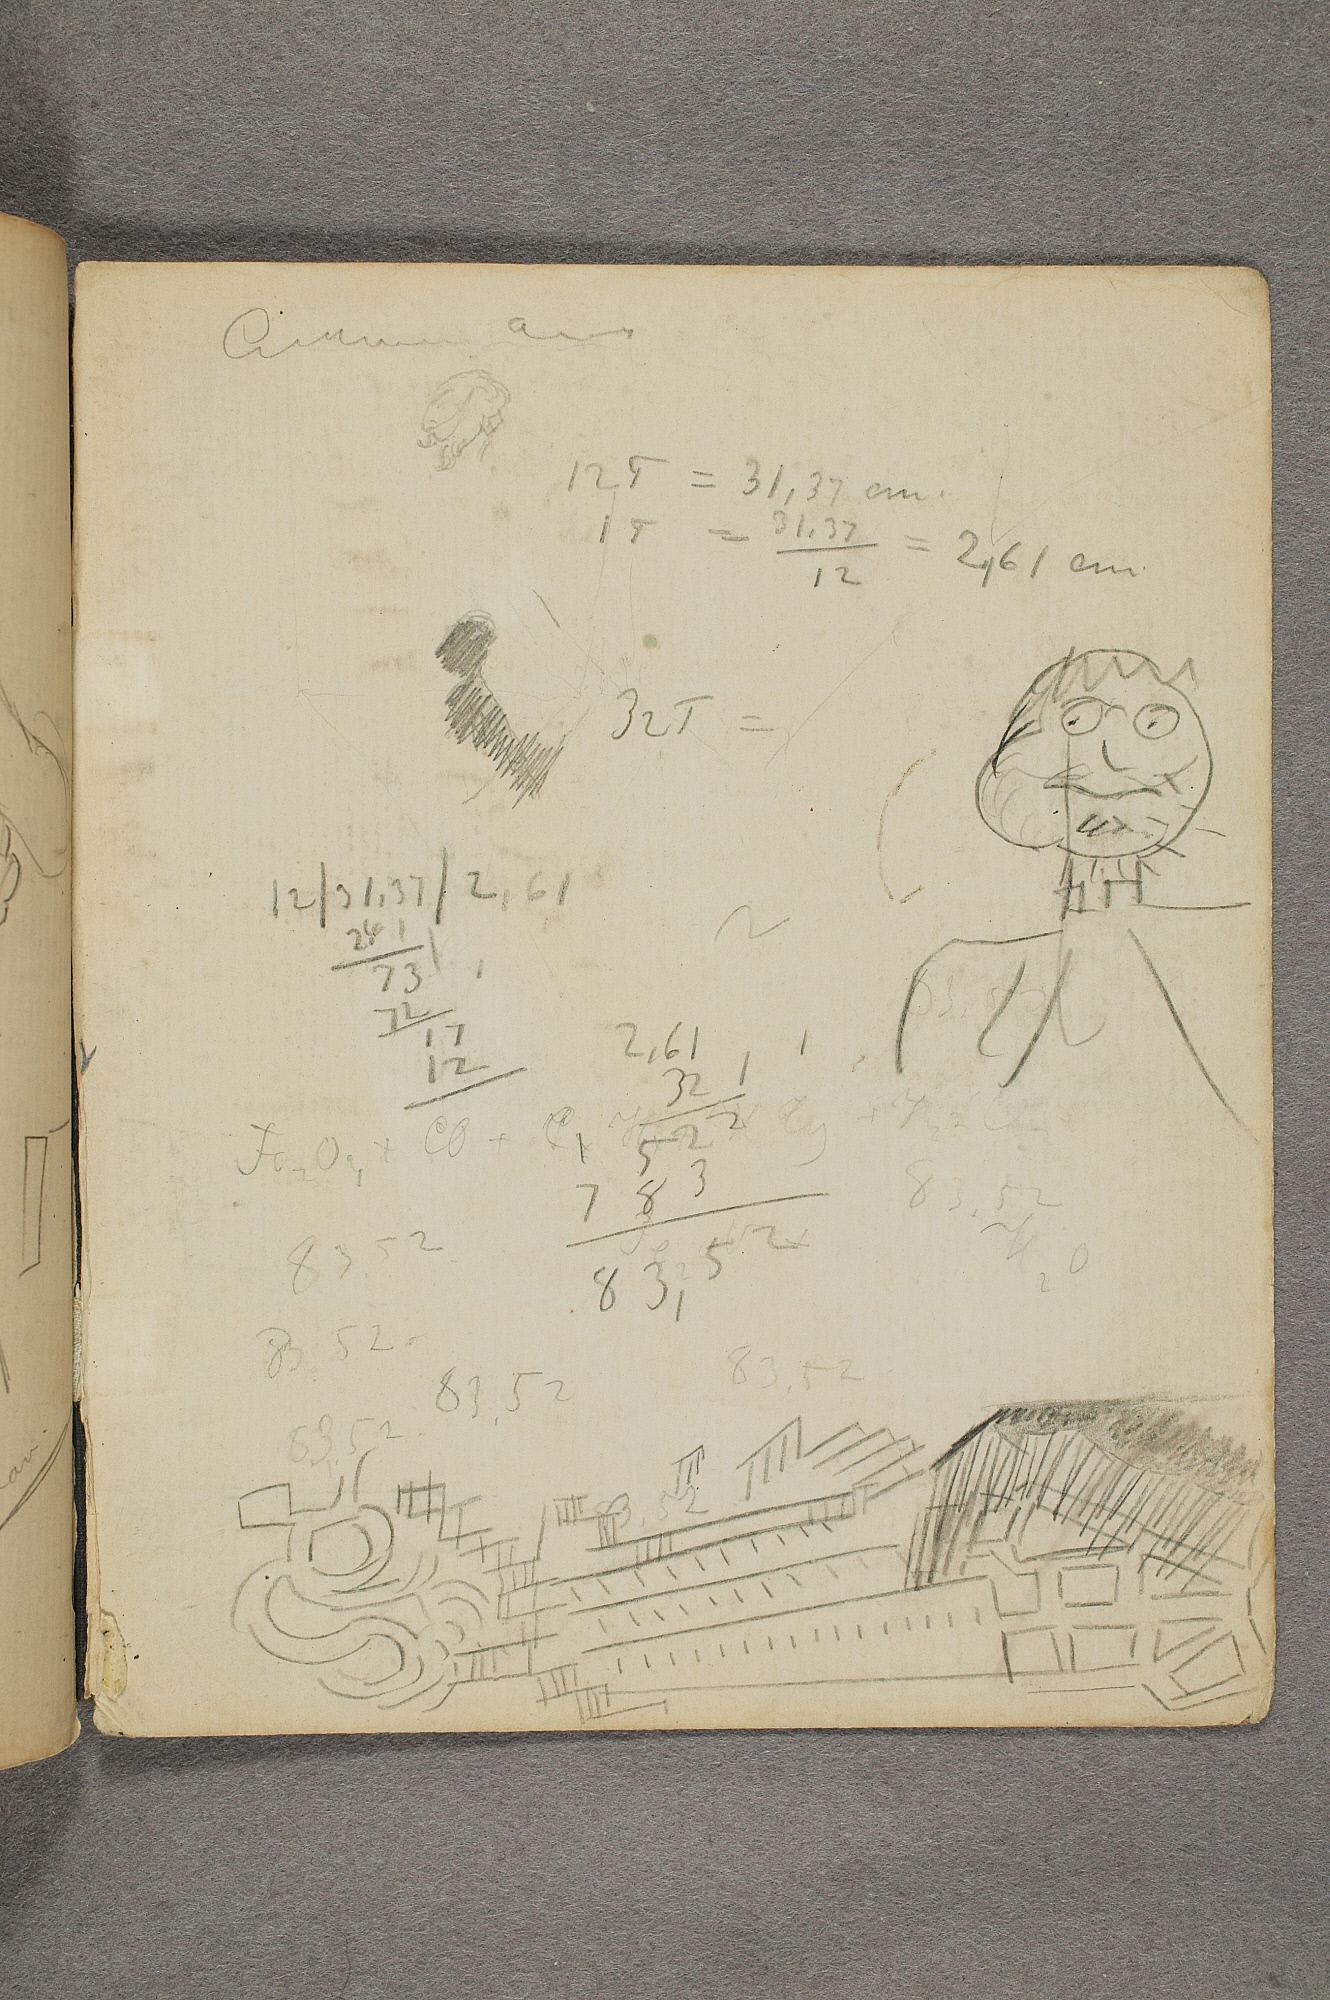 12T = 31,37 cm.
1T = 31,37 / 12 = 2,61 cm
32T =
12/31,37/2,61
24
73
72
17
12
2,61
32
522
783
83,52
83,52
83,52
H2O
83,52
83,52
83,52
83,52
83,52
83,52